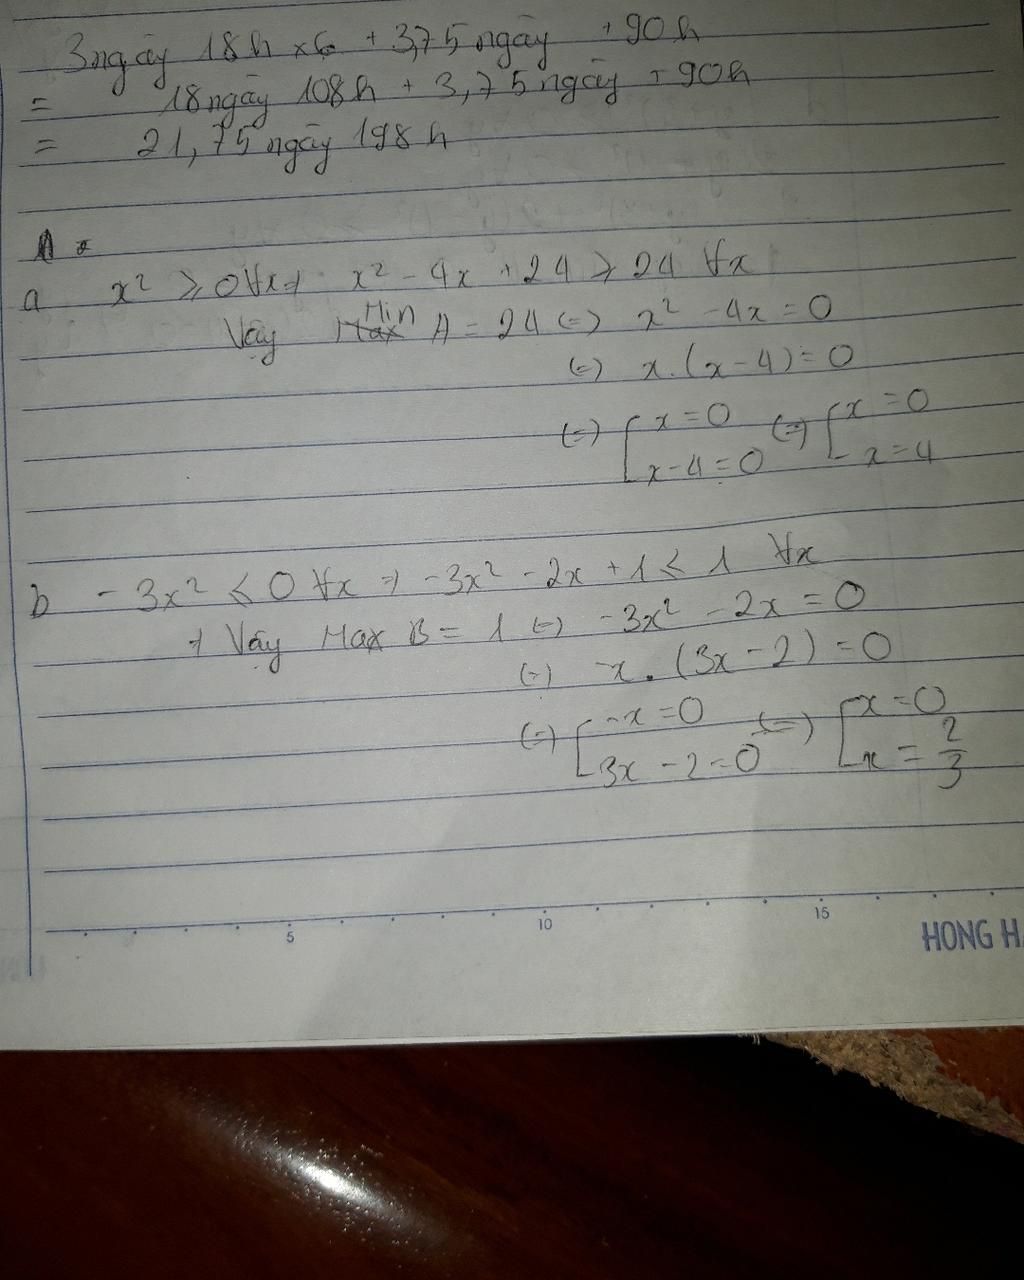 3 ngày 18h x 6 + 3,75 ngày + 90h
= 18 ngày 108h + 3,75 ngày + 90h
= 21,75 ngày 198h
a x² ⩾ 0 ∀x → x² - 4x + 24 ⩾ 24 ∀x
Vậy Min A = 24 (=) x² - 4x = 0
(=) x.(x-4) = 0
(=) [x = 0 (=) [x = 0
x-4 = 0 x = 4
b -3x² ⩽ 0 ∀x → -3x² - 2x + 1 ⩽ 1 ∀x
→ Vậy Max B = 1 (=) -3x² - 2x = 0
(=) -x.(3x-2) = 0
(=) [-x = 0 (=) [x = 0
3x - 2 = 0 x = 2/3
5 10 15
HONG HA